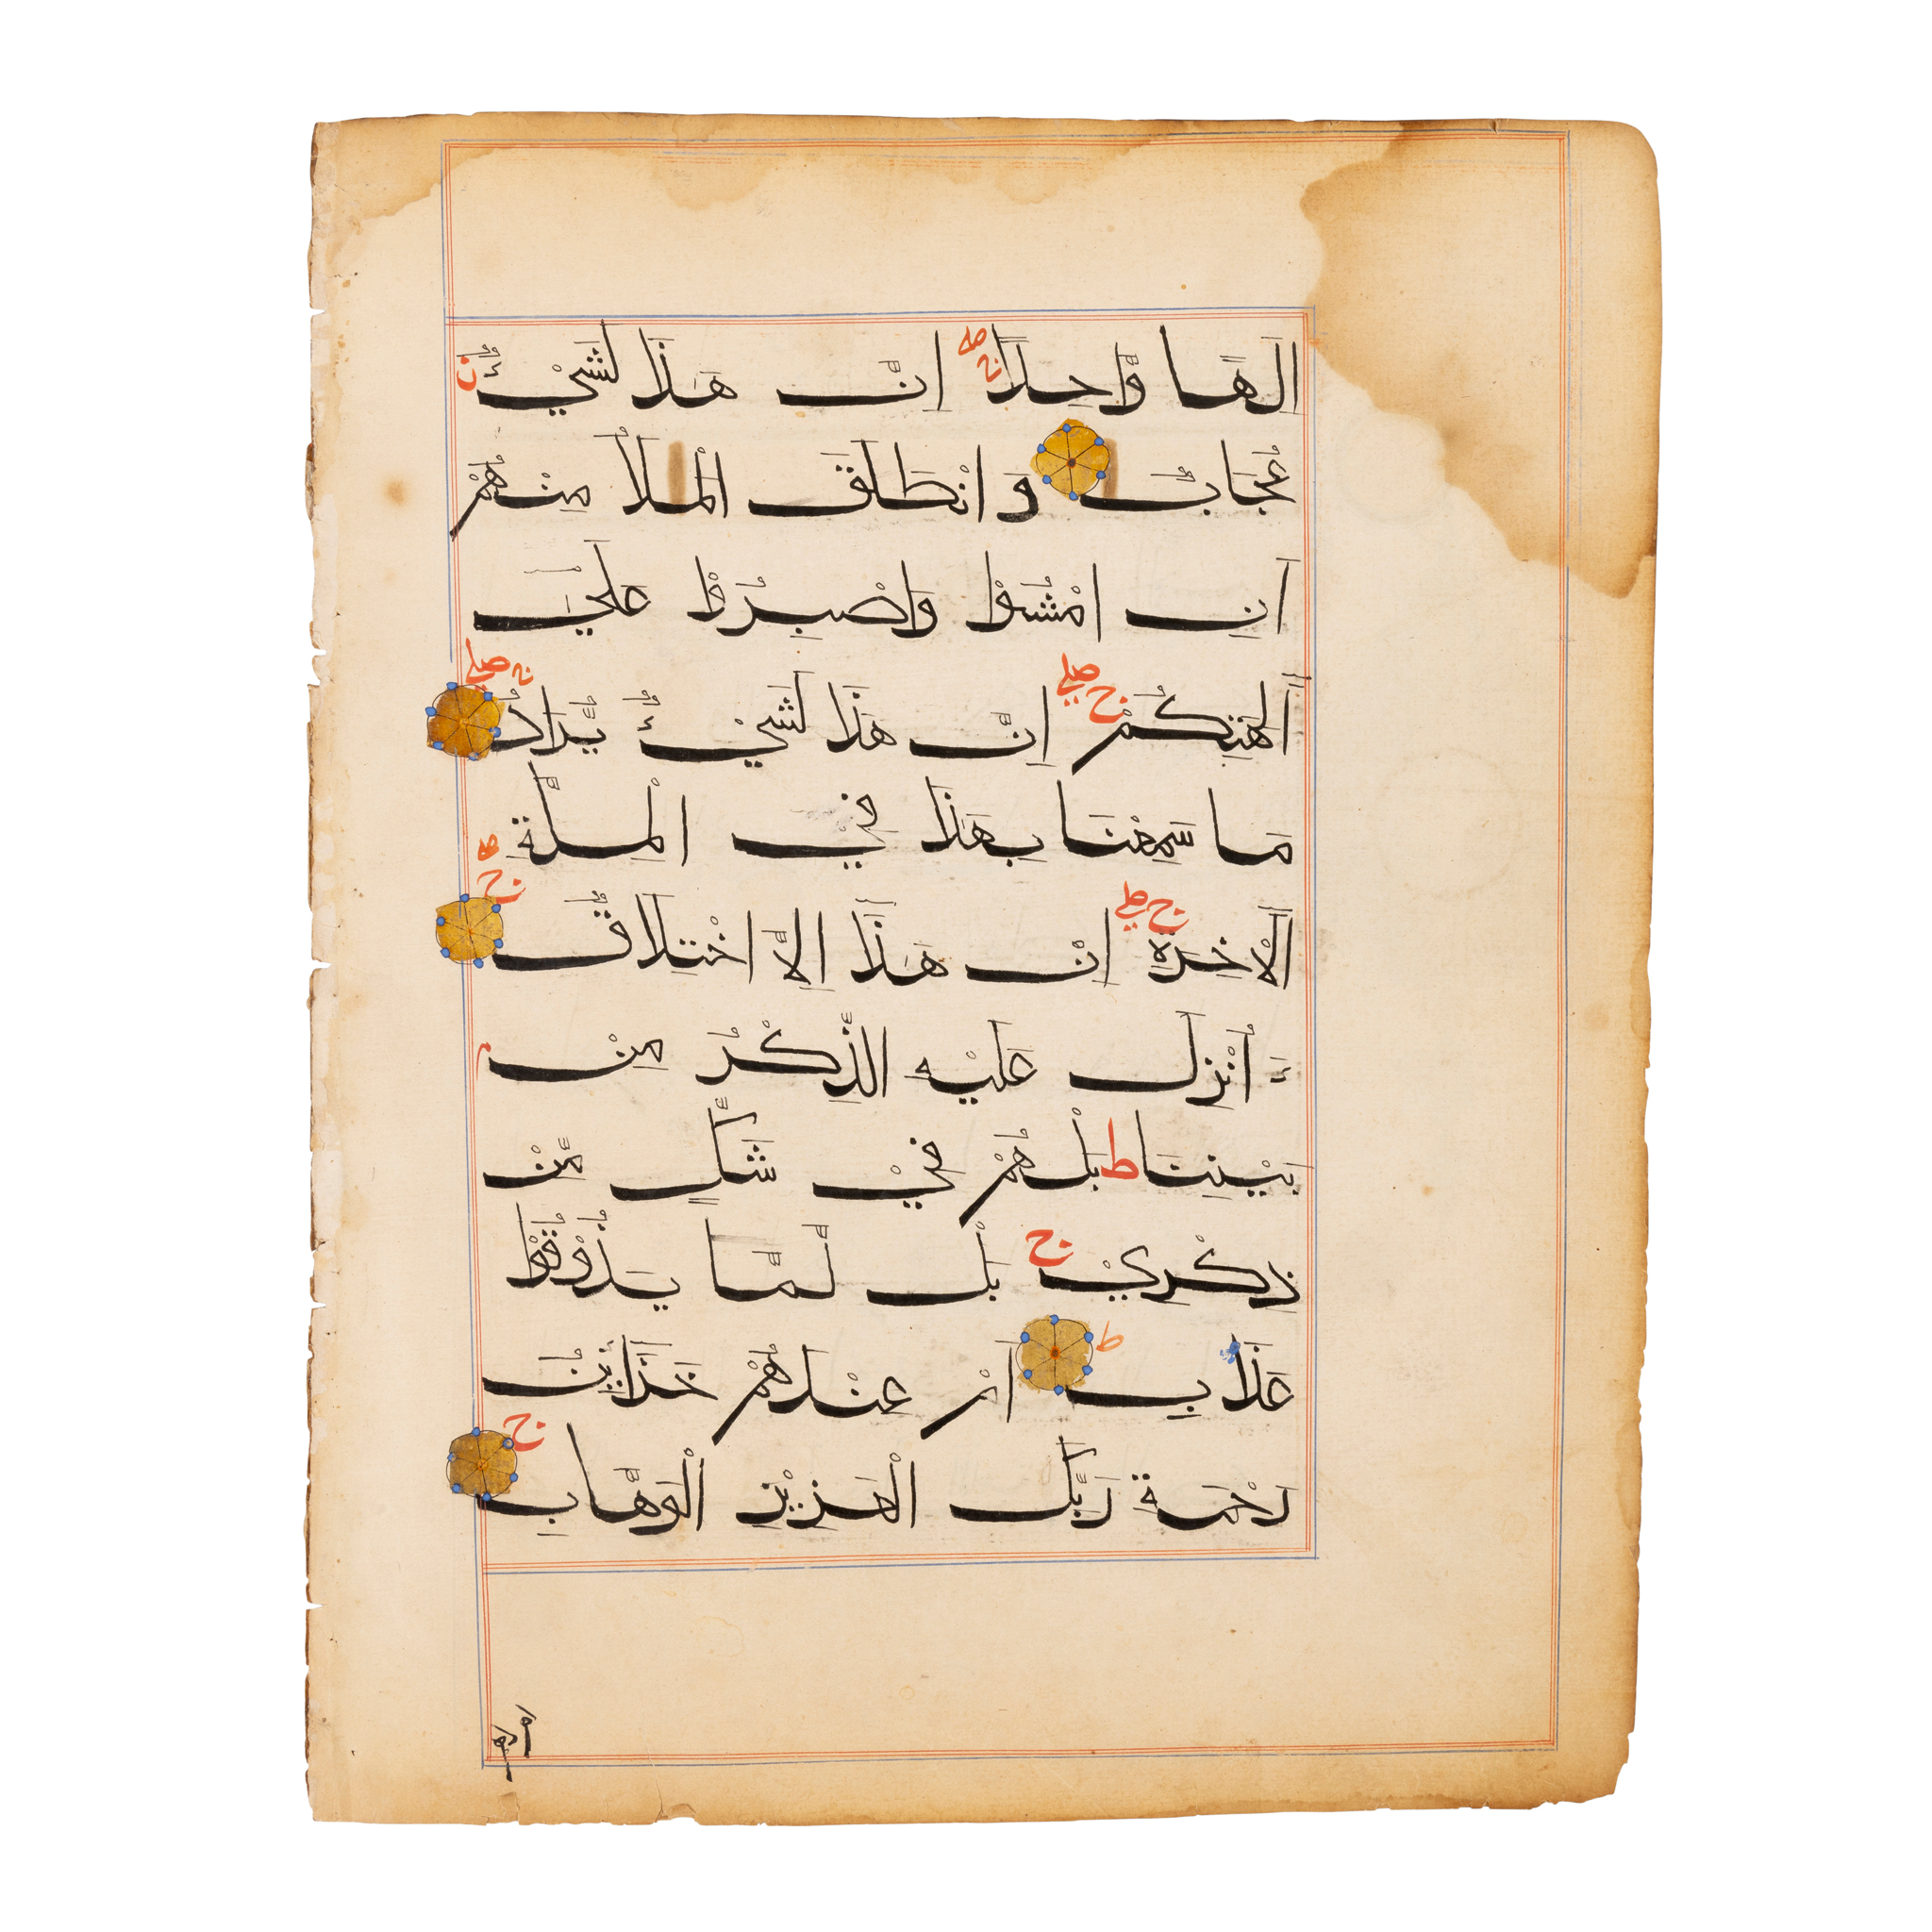 اِلٰهًا وَّاحِدًا صلے ج اِنَّ هٰذَا لَشَيْءٌ ج
عُجَابٌ وَ انْطَلَقَ الْمَلَاُ مِنْهُمْ
اَنِ امْشُوْا وَاصْبِرُوْا عَلٰٓي
اٰلِهَتِكُمْ ج صلے اِنَّ هٰذَا لَشَيْءٌ يُّرَادُ ج صلے
مَا سَمِعْنَا بِهٰذَا فِي الْمِلَّةِ
الْاٰخِرَةِ ج صلے اِنْ هٰذَآ اِلَّا اخْتِلَاقٌ ج
ءَ اُنْزِلَ عَلَيْهِ الذِّكْرُ مِنْ
بَيْنِنَا ط بَلْ هُمْ فِيْ شَكٍّ مِّنْ
ذِكْرِيْ ج بَلْ لَّمَّا يَذُوْقُوْا
عَذَابِ ط اَمْ عِنْدَهُمْ خَزَآئِنُ
رَحْمَةِ رَبِّكَ الْعَزِيْزِ الْوَهَّابِ ج
اَمْ لَهُمْ